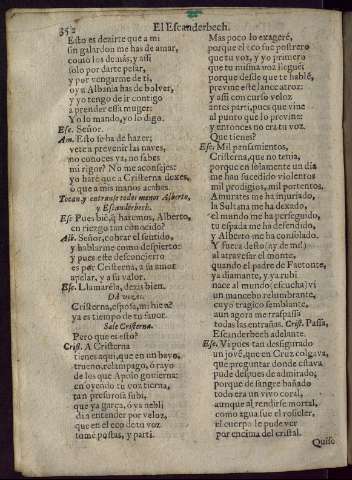 352
El Escanderbech.
Esto es dezirte que a mi
sin galardon me has de amar,
como los demas, y assi
solo por darte pesar,
y por vengarme de ti,
oy a Albania has de bolver,
y yo tengo de ir contigo
a prender essa muger:
Yo lo mando, yo lo digo.
Esc. Señor.
Am. Esto se ha de hazer;
vete a prevenir las naves,
no conoces ya, no sabes
mi rigor? No me aconsejes:
yo harè que a Cristerna dexes,
o que a mis manos acabes.
Tocan, y entranse todos menos Alberto,
y Escanderbech.
Es. Pues biē, q̄ haremos, Alberto,
en riezgo tan conocido?
Alb. Señor, cobrar el sentido,
y hablarme como despierto:
y pues este desconcierto
es por Cristerna, a tu amor
apelar, y a su valor.
Esc. Llamarèla, dezis bien.
Dà vozes.
Cristerna, esposa, mi biē?
ya es tiempo de tu favor.
Sale Cristerna.
Pero que es esto?
Crist. A Cristerna
tienes aqui, que en un bayo,
trueno, relampago, ò rayo
de los que Apolo gobierna:
en oyendo tu voz tierna,
tan presurosa subi,
que ya garça, ò ya nebli
dia entender por veloz,
que en el eco de tu voz
tomè postas, y parti.
Mas poco lo exageré,
porque el eco fue postrero
que tu voz, y yo primero
que tu misma voz lleguè:
porque desde que te hablè,
previne este lance atroz:
y assi con curso veloz
antes parti, pues que vine
al punto que lo previne:
y entonces no era tu voz.
Que tienes?
Esc. Mil pensamientos,
Cristerna, que no tenia,
porque en solamente un dia
me han sucedido violentos
mil prodigios, mil portentos,
Amurates me ha injuriado,
la Sultana me ha dexado,
el mundo me ha perseguido,
tu espada me ha defendido,
y Alberto me ha consolado.
Y fuera desto (ay de mi)
al atravesar el monte,
quando el padre de Faetonte,
ya diamante, y ya rubi
nace al mundo (escucha) vi
un mancebo relumbrante,
cuyo tragico semblante,
aun agora me traspassa
todas las entrañas. Crist. Passa,
Escanderbech adelante.
Esc. Vi pues tan desfigurado
un jovē, que en Cruz colgava,
que preguntar donde estava
pude despues de admirado;
porque de sangre bañado
todo era un vivo coral,
aunque al rendirse mortal,
como agua fue el rosicler,
el cuerpo le pude ver
por encima del cristal.
Quiso